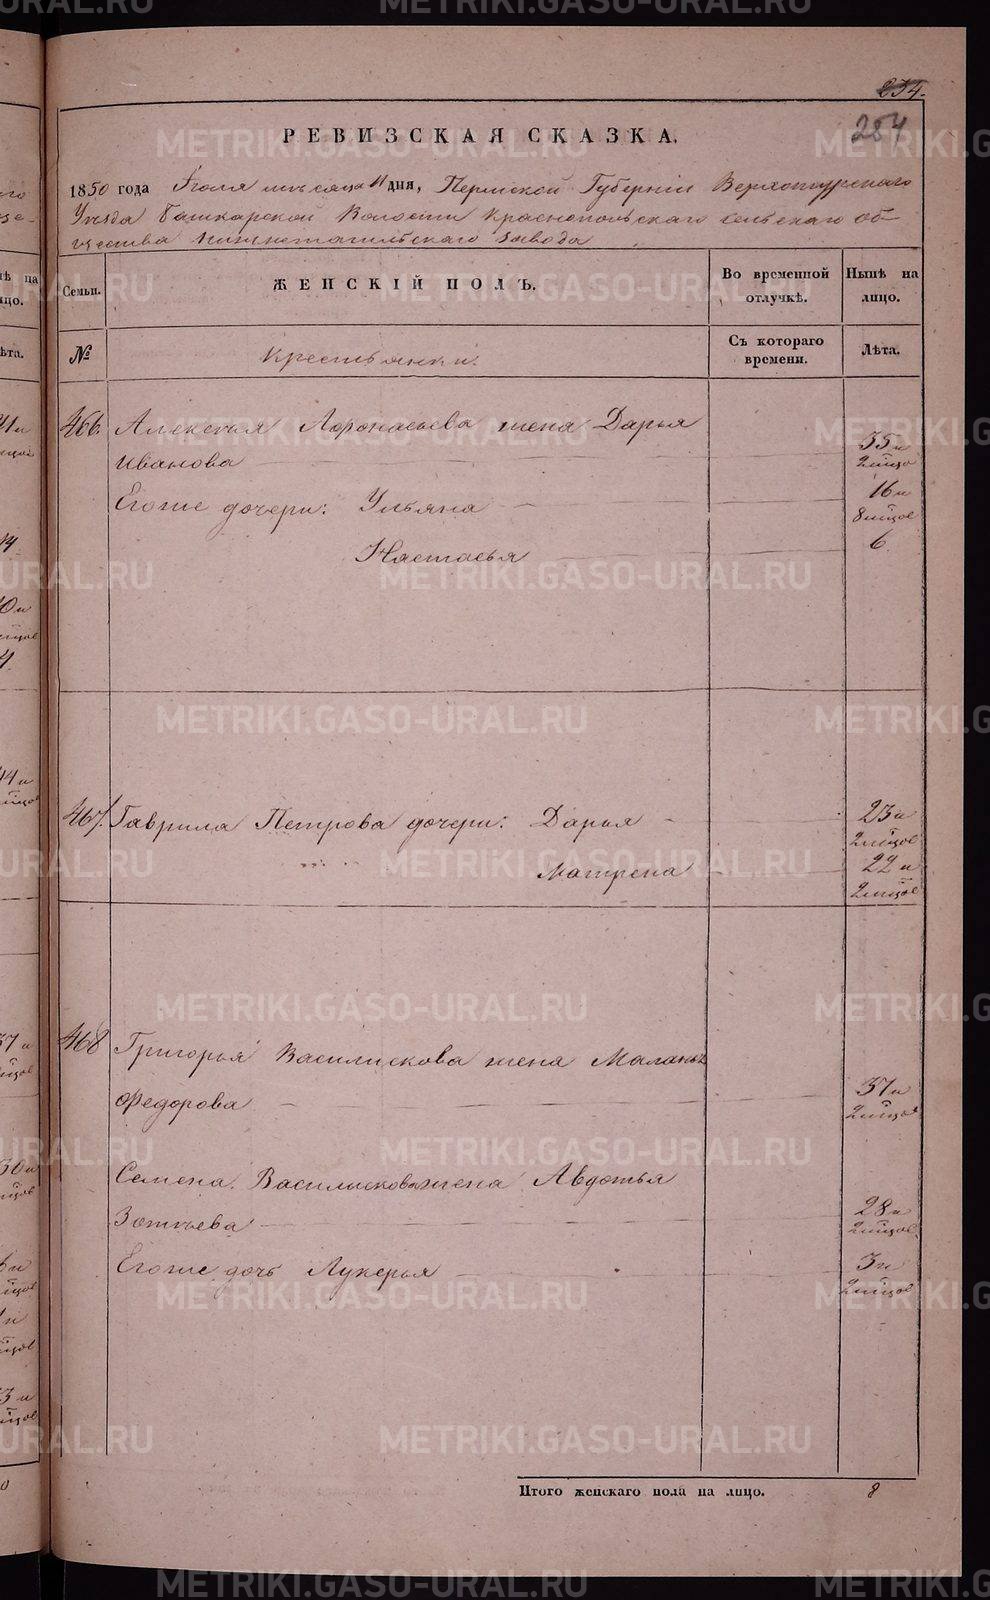 234.
284
РЕВИЗСКАЯ СКАЗКА.
1850 года Іюля мѣсяца 11 дня, Пермской Губерніи Верхотурскаго
Уѣзда Башкарской Волости Краснопольскаго сельскаго об-
щества Нижнетагильскаго завода
Семьи.
ЖЕНСКІЙ ПОЛЪ.
Во временной отлучкѣ.
Нынѣ на лицо.
№
Крестьянки.
Съ котораго времени.
Лѣта.
466. Алексѣя Афонасьева жена Дарья
Иванова 35 и 2 мѣсяц
Егоже дочери: Ульяна 16 и 8 мѣсцов
Настасья 6
467. Гаврила Петрова дочери: Дарья 23 и 2 мѣсцов
Матрена 22 и 2 мѣсцов
468 Григорья Василискова жена Маланья
Федорова 37 и 2 мѣсцов
Семена Василискова жена Авдотья
Зотѣева 28 и 2 мѣсцов
Егоже дочь Лукерья 3 и 2 мѣсцов
Итого женскаго пола на лицо. 8
METRIKI.GASO-URAL.RU